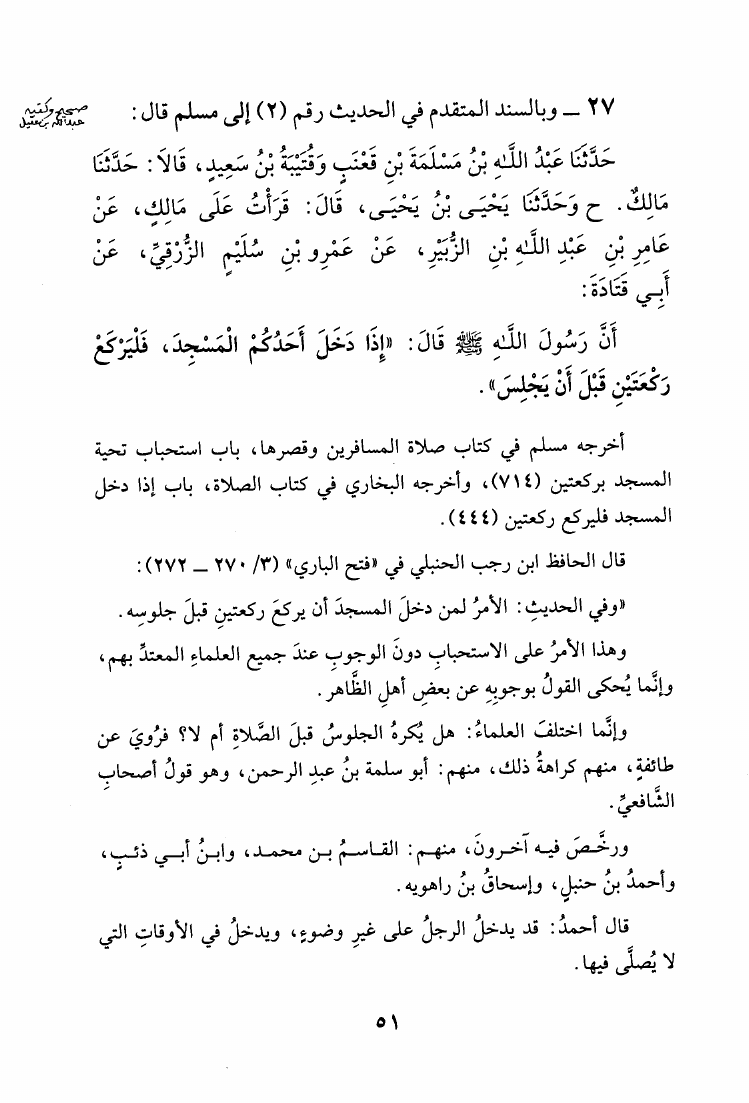 صحيح وكتبه
عبدالله بن عقيل
٢٧ ــ وبالسند المتقدم في الحديث رقم (٢) إلى مسلم قال:
حَدَّثَنَا عَبْدُ اللَّهِ بْنُ مَسْلَمَةَ بْنِ قَعْنَبٍ وَقُتَيْبَةُ بْنُ سَعِيدٍ، قَالَا: حَدَّثَنَا
مَالِكٌ. ح وَحَدَّثَنَا يَحْيَى بْنُ يَحْيَى، قَالَ: قَرَأْتُ عَلَى مَالِكٍ، عَنْ
عَامِرِ بْنِ عَبْدِ اللَّهِ بْنِ الزُّبَيْرِ، عَنْ عَمْرِو بْنِ سُلَيْمٍ الزُّرَقِيِّ، عَنْ
أَبِي قَتَادَةَ:
أَنَّ رَسُولَ اللَّهِ ﷺ قَالَ: «إِذَا دَخَلَ أَحَدُكُمْ الْمَسْجِدَ، فَلْيَرْكَعْ
رَكْعَتَيْنِ قَبْلَ أَنْ يَجْلِسَ».
أخرجه مسلم في كتاب صلاة المسافرين وقصرها، باب استحباب تحية
المسجد بركعتين (٧١٤)، وأخرجه البخاري في كتاب الصلاة، باب إذا دخل
المسجد فليركع ركعتين (٤٤٤).
قال الحافظ ابن رجب الحنبلي في «فتح الباري» (٣/ ٢٧٠ ــ ٢٧٢):
«وفي الحديثِ: الأمرُ لمن دخلَ المسجدَ أن يركعَ ركعتينِ قبلَ جلوسِه.
وهذا الأمرُ على الاستحبابِ دونَ الوجوبِ عندَ جميع العلماءِ المعتدِّ بهم،
وإنَّما يُحكى القولُ بوجوبِهِ عن بعضِ أهلِ الظَّاهر.
وإنَّما اختلفَ العلماءُ: هل يُكرهُ الجلوسُ قبلَ الصَّلاةِ أم لا؟ فرُويَ عن
طائفةٍ، منهم كراهةُ ذلك، منهم: أبو سلمة بنُ عبدِ الرحمن، وهو قولُ أصحابِ
الشَّافعيِّ.
ورخَّـصَ فيـه آخـرونَ، منهـم: القـاسـمُ بـن محمـد، وابـنُ أبـي ذئـبٍ،
وأحمدُ بنُ حنبلٍ، وإسحاقُ بنُ راهويه.
قال أحمدُ: قد يدخلُ الرجلُ على غيرِ وضوءٍ، ويدخلُ في الأوقاتِ التي
لا يُصلَّى فيها.
٥١